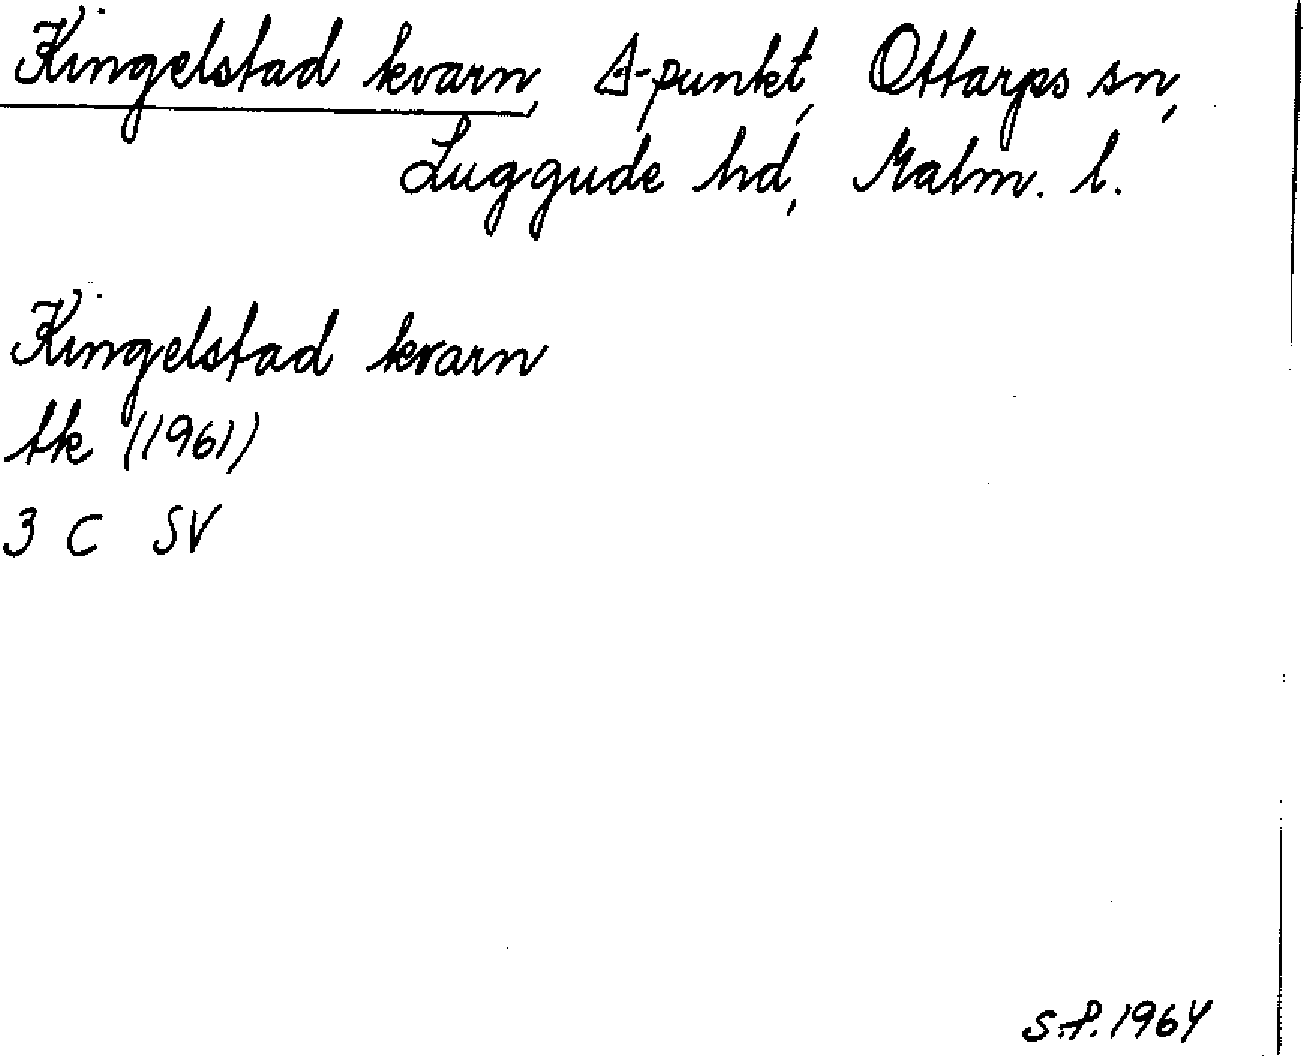 Kingelstad kvarn, Δ-punkt, Ottarps sn,
Luggude hd, Malm. l.
Kingelstad kvarn
tk (1961)
3 C SV
S.P. 1964